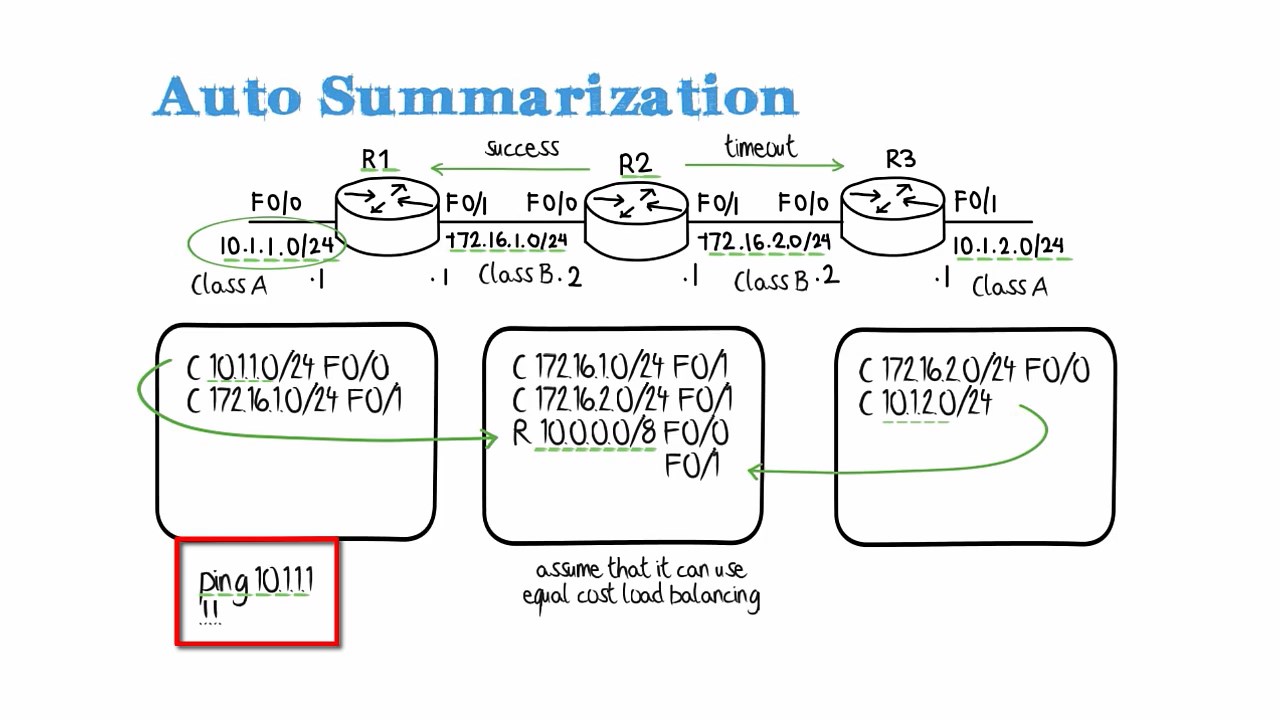 Auto Summarization
success
timeout
R1
R2
R3
F0/0
F0/1
F0/0
F0/1
F0/0
F0/1
10.1.1.0/24
172.16.1.0/24
172.16.2.0/24
10.1.2.0/24
Class A
.1
.1
Class B
.2
.1
Class B
.2
.1
Class A
C 10.1.1.0/24 F0/0
C 172.16.1.0/24 F0/1
C 172.16.1.0/24 F0/1
C 172.16.2.0/24 F0/1
R 10.0.0.0/8 F0/0
F0/1
C 172.16.2.0/24 F0/0
C 10.1.2.0/24
ping 10.1.1.1
!!
assume that it can use
equal cost load balancing